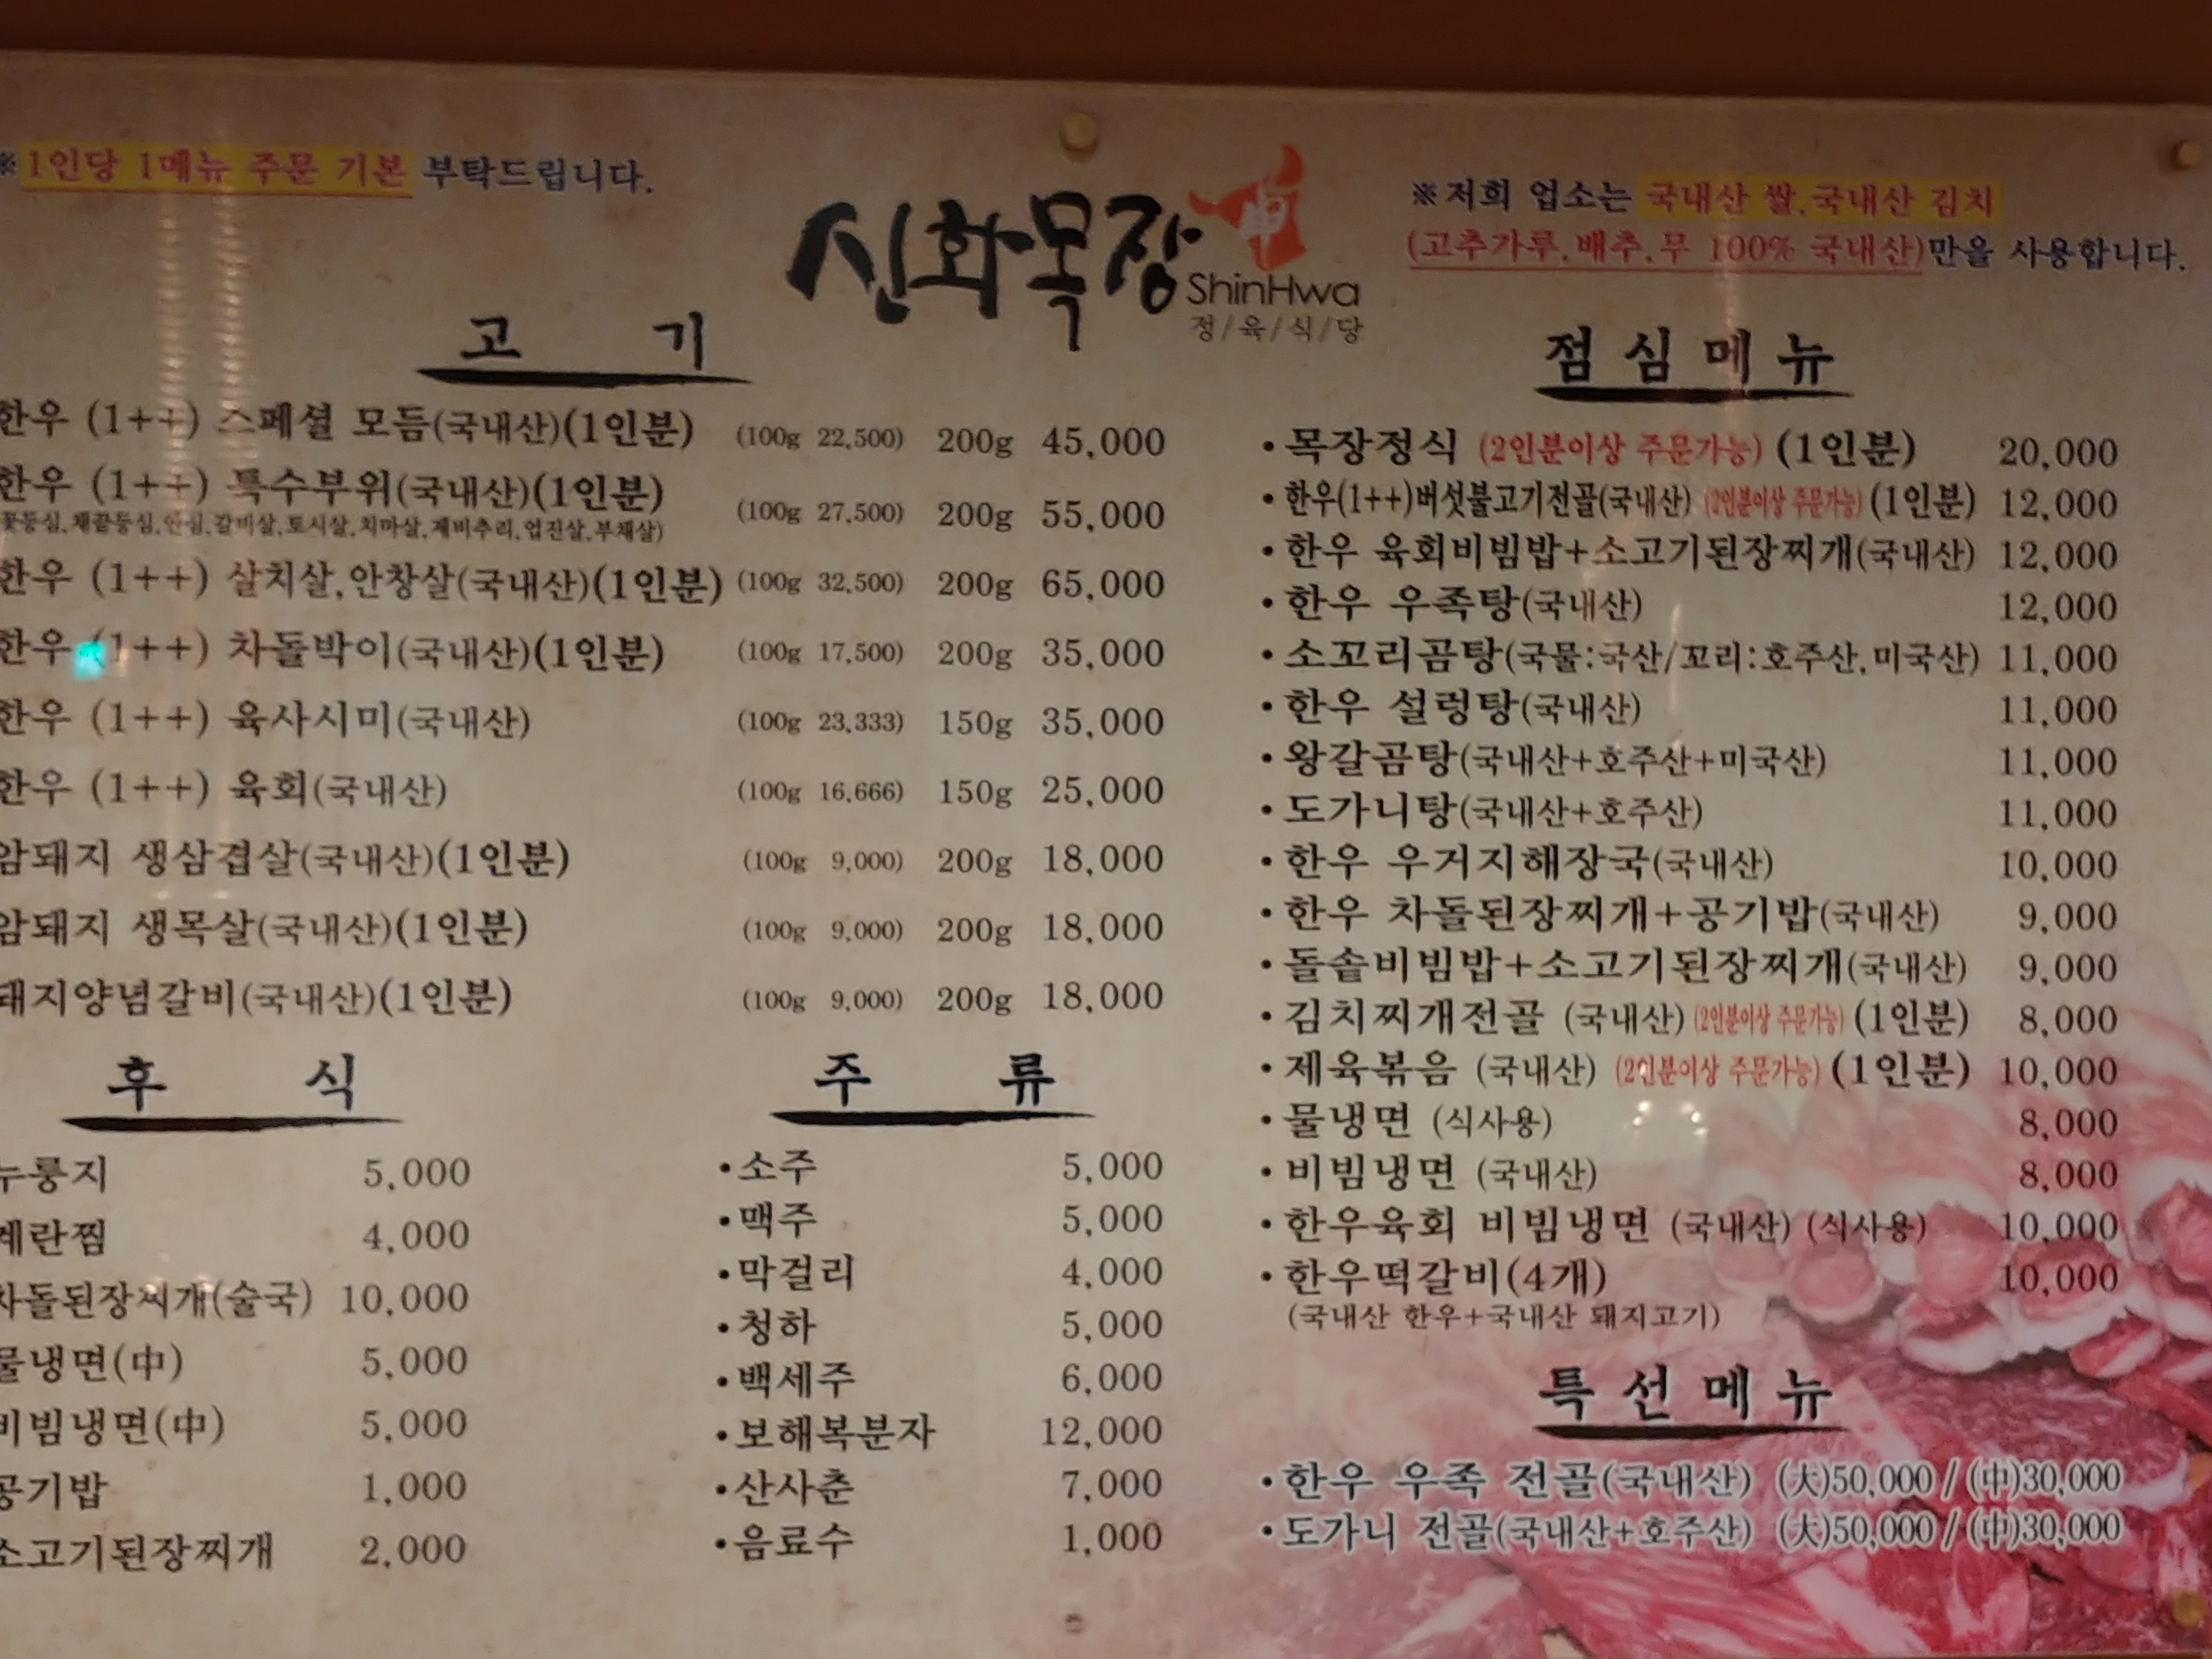 ※1인당 1메뉴 주문 기본 부탁드립니다.
신화목장
ShinHwa
정/육/식/당
※저희 업소는 국내산 쌀.국내산 김치
(고추가루.배추.무 100% 국내산)만을 사용합니다.
고 기
한우 (1++) 스페셜 모듬(국내산)(1인분) (100g 22,500) 200g 45,000
한우 (1++) 특수부위(국내산)(1인분) (100g 27,500) 200g 55,000
꽃등심.채끝등심.안심.갈비살.토시살.치마살.제비추리.업진살.부채살)
한우 (1++) 살치살.안창살(국내산)(1인분) (100g 32,500) 200g 65,000
한우 (1++) 차돌박이(국내산)(1인분) (100g 17,500) 200g 35,000
한우 (1++) 육사시미(국내산) (100g 23,333) 150g 35,000
한우 (1++) 육회(국내산) (100g 16,666) 150g 25,000
암돼지 생삼겹살(국내산)(1인분) (100g 9,000) 200g 18,000
암돼지 생목살(국내산)(1인분) (100g 9,000) 200g 18,000
돼지양념갈비(국내산)(1인분) (100g 9,000) 200g 18,000
후 식
누룽지 5,000
계란찜 4,000
차돌된장찌개(술국) 10,000
물냉면(中) 5,000
비빔냉면(中) 5,000
공기밥 1,000
소고기된장찌개 2,000
주 류
•소주 5,000
•맥주 5,000
•막걸리 4,000
•청하 5,000
•백세주 6,000
•보해복분자 12,000
•산사춘 7,000
•음료수 1,000
점심메뉴
•목장정식 (2인분이상 주문가능) (1인분) 20,000
•한우(1++)버섯불고기전골(국내산) (2인분이상 주문가능) (1인분) 12,000
•한우 육회비빔밥+소고기된장찌개(국내산) 12,000
•한우 우족탕(국내산) 12,000
•소꼬리곰탕(국물:국산/꼬리:호주산.미국산) 11,000
•한우 설렁탕(국내산) 11,000
•왕갈곰탕(국내산+호주산+미국산) 11,000
•도가니탕(국내산+호주산) 11,000
•한우 우거지해장국(국내산) 10,000
•한우 차돌된장찌개+공기밥(국내산) 9,000
•돌솥비빔밥+소고기된장찌개(국내산) 9,000
•김치찌개전골 (국내산) (2인분이상 주문가능) (1인분) 8,000
•제육볶음 (국내산) (2인분이상 주문가능) (1인분) 10,000
•물냉면 (식사용) 8,000
•비빔냉면 (국내산) 8,000
•한우육회 비빔냉면 (국내산) (식사용) 10,000
•한우떡갈비(4개) 10,000
(국내산 한우+국내산 돼지고기)
특선메뉴
•한우 우족 전골(국내산) (大)50,000 / (中)30,000
•도가니 전골(국내산+호주산) (大)50,000 / (中)30,000